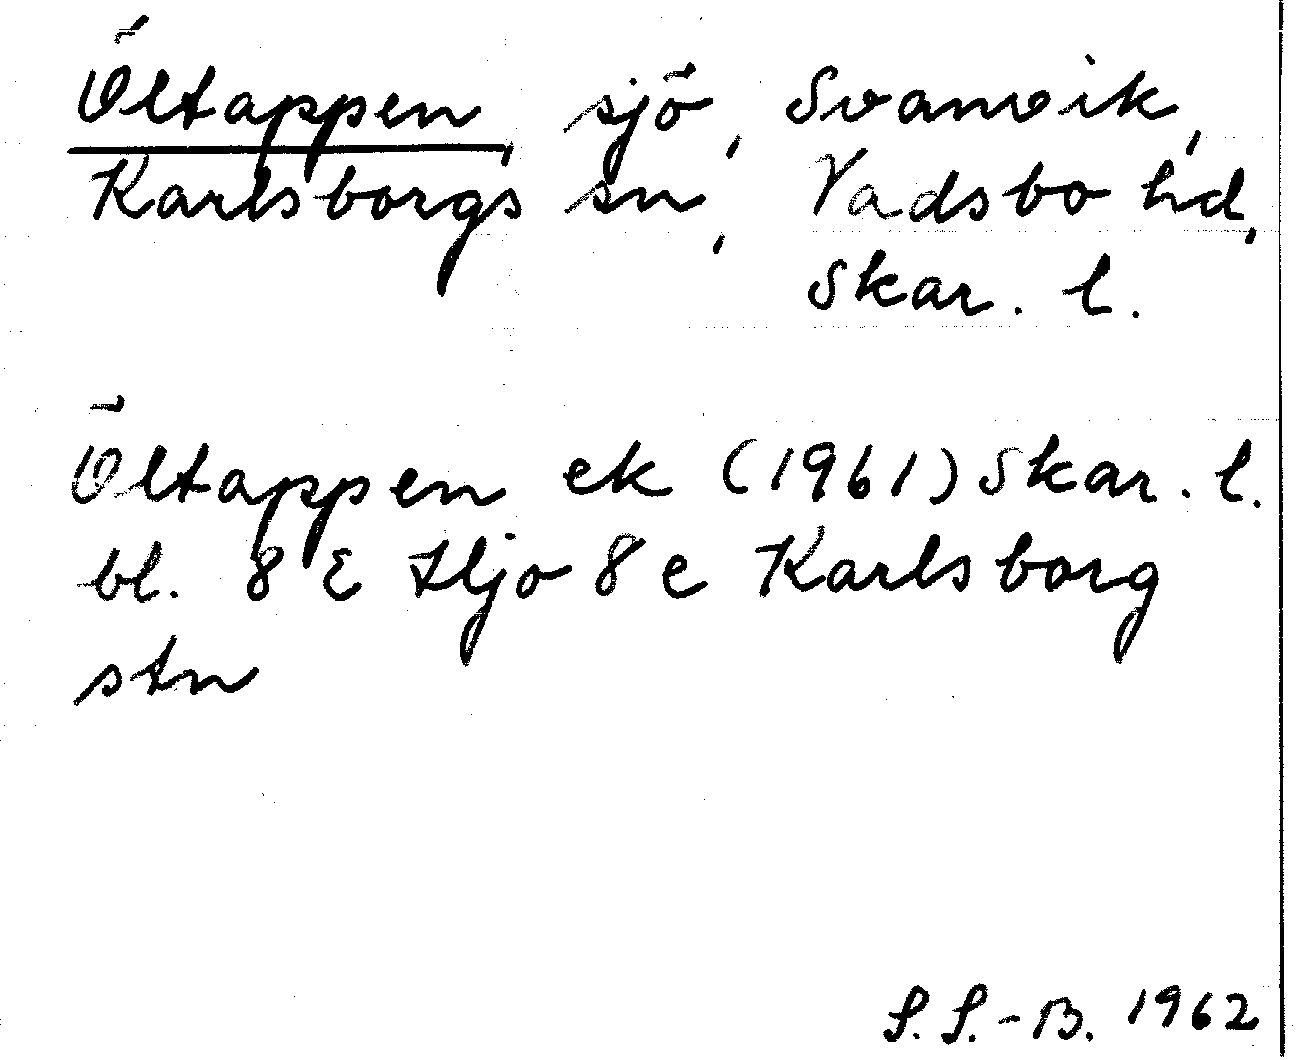 Öltappen, sjö, Svanvik,
Karlsborgs sn, Vadsbo hd,
Skar. l.
Öltappen ek (1961) Skar. l.
bl. 8 E Hjo 8 e Karlsborg
stn
S. S.-B. 1962